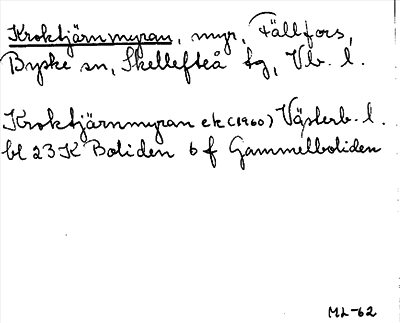 Kroktjärnmyran, myr, Fällfors,
Byske sn, Skellefteå tg, Vb. l.
Kroktjärnmyran ek (1960) Västerb. l.
bl 23 K Boliden 6 f Gammelboliden
ML-62